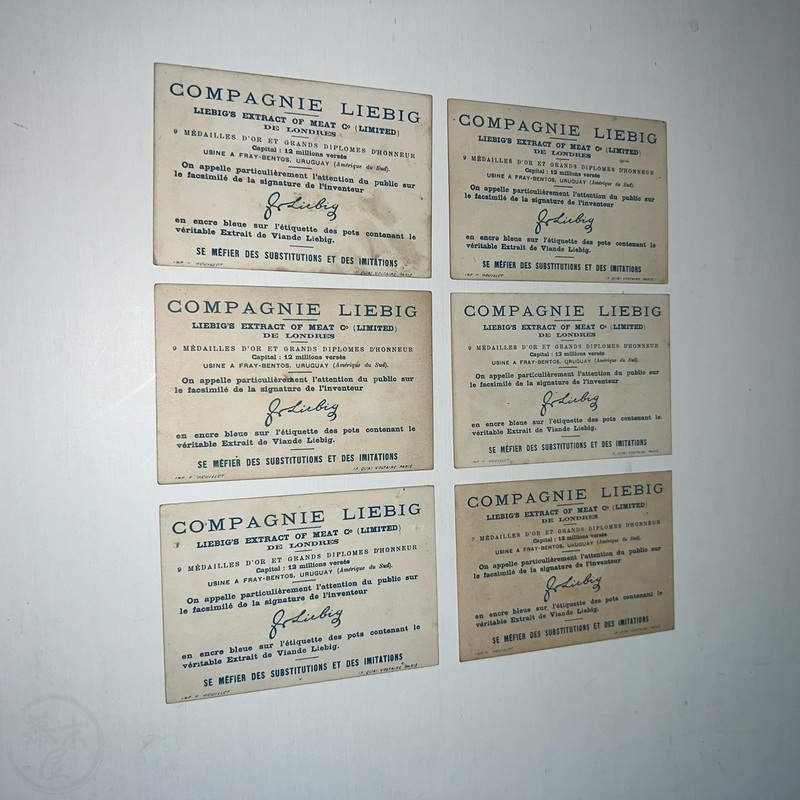 COMPAGNIE LIEBIG
LIEBIG'S EXTRACT OF MEAT Cº (LIMITED)
DE LONDRES
9 MÉDAILLES D'OR ET GRANDS DIPLOMES D'HONNEUR
Capital : 12 millions versés
USINE A FRAY-BENTOS, URUGUAY (Amérique du Sud).
On appelle particulièrement l'attention du public sur
le facsimilé de la signature de l'inventeur
J v Liebig
en encre bleue sur l'étiquette des pots contenant le
véritable Extrait de Viande Liebig.
SE MÉFIER DES SUBSTITUTIONS ET DES IMITATIONS
IMP F HOUILLOT
17, QUAI VOLTAIRE, PARIS
COMPAGNIE LIEBIG
LIEBIG'S EXTRACT OF MEAT Cº (LIMITED)
DE LONDRES
9 MÉDAILLES D'OR ET GRANDS DIPLOMES D'HONNEUR
Capital : 12 millions versés
USINE A FRAY-BENTOS, URUGUAY (Amérique du Sud).
On appelle particulièrement l'attention du public sur
le facsimilé de la signature de l'inventeur
J v Liebig
en encre bleue sur l'étiquette des pots contenant le
véritable Extrait de Viande Liebig.
SE MÉFIER DES SUBSTITUTIONS ET DES IMITATIONS
IMP F HOUILLOT
17, QUAI VOLTAIRE, PARIS
COMPAGNIE LIEBIG
LIEBIG'S EXTRACT OF MEAT Cº (LIMITED)
DE LONDRES
9 MÉDAILLES D'OR ET GRANDS DIPLOMES D'HONNEUR
Capital : 12 millions versés
USINE A FRAY-BENTOS, URUGUAY (Amérique du Sud).
On appelle particulièrement l'attention du public sur
le facsimilé de la signature de l'inventeur
J v Liebig
en encre bleue sur l'étiquette des pots contenant le
véritable Extrait de Viande Liebig.
SE MÉFIER DES SUBSTITUTIONS ET DES IMITATIONS
IMP F HOUILLOT
17, QUAI VOLTAIRE, PARIS
COMPAGNIE LIEBIG
LIEBIG'S EXTRACT OF MEAT Cº (LIMITED)
DE LONDRES
9 MÉDAILLES D'OR ET GRANDS DIPLOMES D'HONNEUR
Capital : 12 millions versés
USINE A FRAY-BENTOS, URUGUAY (Amérique du Sud).
On appelle particulièrement l'attention du public sur
le facsimilé de la signature de l'inventeur
J v Liebig
en encre bleue sur l'étiquette des pots contenant le
véritable Extrait de Viande Liebig.
SE MÉFIER DES SUBSTITUTIONS ET DES IMITATIONS
IMP F HOUILLOT
17, QUAI VOLTAIRE, PARIS
COMPAGNIE LIEBIG
LIEBIG'S EXTRACT OF MEAT Cº (LIMITED)
DE LONDRES
9 MÉDAILLES D'OR ET GRANDS DIPLOMES D'HONNEUR
Capital : 12 millions versés
USINE A FRAY-BENTOS, URUGUAY (Amérique du Sud).
On appelle particulièrement l'attention du public sur
le facsimilé de la signature de l'inventeur
J v Liebig
en encre bleue sur l'étiquette des pots contenant le
véritable Extrait de Viande Liebig.
SE MÉFIER DES SUBSTITUTIONS ET DES IMITATIONS
IMP F HOUILLOT
17, QUAI VOLTAIRE, PARIS
COMPAGNIE LIEBIG
LIEBIG'S EXTRACT OF MEAT Cº (LIMITED)
DE LONDRES
MÉDAILLES D'OR ET GRANDS DIPLOMES D'HONNEUR
Capital : 12 millions versés
USINE A FRAY-BENTOS, URUGUAY (Amérique du Sud).
On appelle particulièrement l'attention du public sur
le facsimilé de la signature de l'inventeur
J v Liebig
en encre bleue sur l'étiquette des pots contenant le
véritable Extrait de Viande Liebig.
SE MÉFIER DES SUBSTITUTIONS ET DES IMITATIONS
IMP F HOUILLOT
17, QUAI VOLTAIRE, PARIS
幕末屋